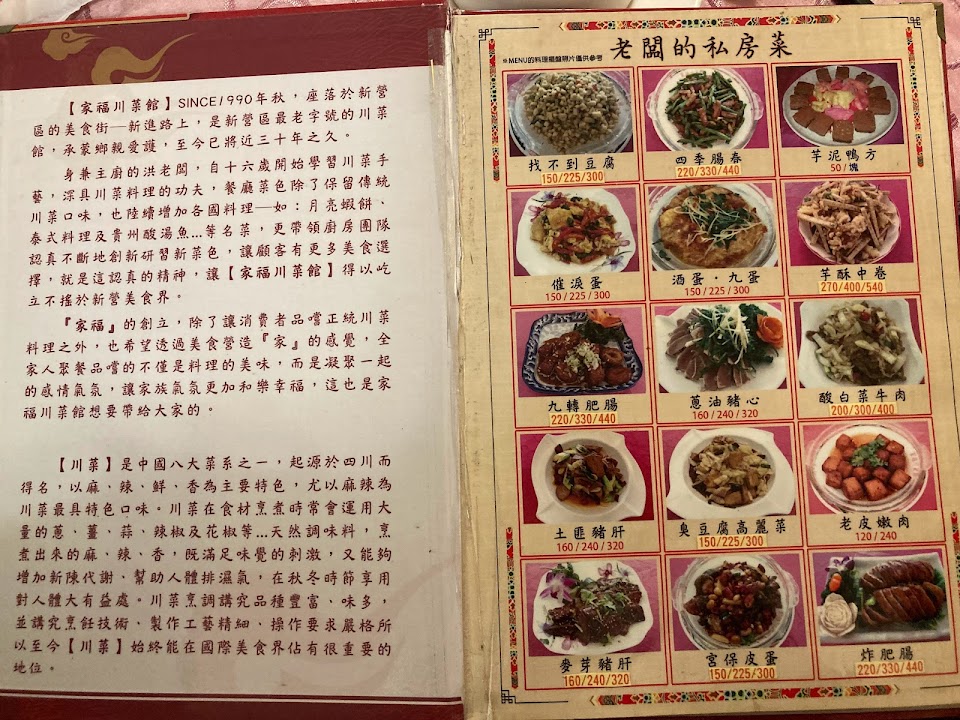 【家福川菜館】SINCE1990年秋，座落於新營
區的美食街─新進路上，是新營區最老字號的川菜
館，承蒙鄉親愛護，至今已將近三十年之久。
身兼主廚的洪老闆，自十六歲開始學習川菜手
藝，深具川菜料理的功夫，餐廳菜色除了保留傳統
川菜口味，也陸續增加各國料理─如：月亮蝦餅、
泰式料理及貴州酸湯魚...等名菜，更帶領廚房團隊
認真不斷地創新研習新菜色，讓顧客有更多美食選
擇，就是這認真的精神，讓【家福川菜館】得以屹
立不搖於新營美食界。
『家福』的創立，除了讓消費者品嚐正統川菜
料理之外，也希望透過美食營造『家』的感覺，全
家人聚餐品嚐的不僅是料理的美味，而是凝聚一起
的感情氣氛，讓家族氣氛更加和樂幸福，這也是家
福川菜館想要帶給大家的。
【川菜】是中國八大菜系之一，起源於四川而
得名，以麻、辣、鮮、香為主要特色，尤以麻辣為
川菜最具特色口味。川菜在食材烹煮時常會運用大
量的蔥、薑、蒜、辣椒及花椒等...天然調味料，烹
煮出來的麻、辣、香，既滿足味覺的刺激，又能夠
增加新陳代謝、幫助人體排濕氣，在秋冬時節享用
對人體大有益處。川菜烹調講究品種豐富、味多，
並講究烹飪技術、製作工藝精細、操作要求嚴格所
以至今【川菜】始終能在國際美食界佔有很重要的
地位。
老闆的私房菜
※MENU的料理擺盤照片僅供參考
找不到豆腐
150/225/300
四季腸春
220/330/440
芋泥鴨方
50/塊
催淚蛋
150/225/300
酒蛋·九蛋
150/225/300
芋酥中卷
270/400/540
九轉肥腸
220/330/440
蔥油豬心
160/240/320
酸白菜牛肉
200/300/400
土匪豬肝
160/240/320
臭豆腐高麗菜
150/225/300
老皮嫩肉
120/240
麥芽豬肝
160/240/320
宮保皮蛋
150/225/300
炸肥腸
220/330/440